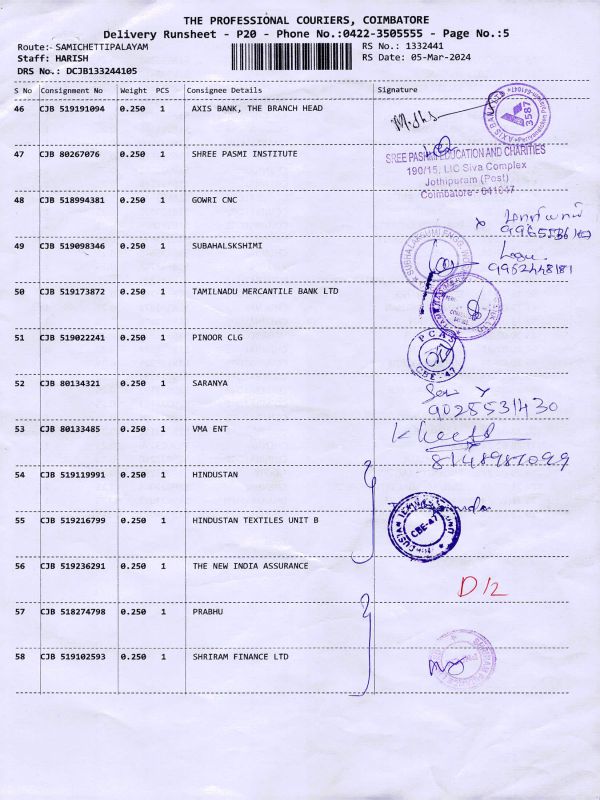 THE PROFESSIONAL COURIERS, COIMBATORE
Delivery Runsheet - P20 - Phone No.:0422-3505555 - Page No.:5
Route:- SAMICHETTIPALAYAM
Staff: HARISH
DRS No.: DCJB133244105
RS No.: 1332441
RS Date: 05-Mar-2024
S No Consignment No Weight PCS Consignee Details Signature
46 CJB 519191094 0.250 1 AXIS BANK, THE BRANCH HEAD
AXIS BANK
3587
47 CJB 80267076 0.250 1 SHREE PASMI INSTITUTE
SREE PASHMI EDUCATION AND CHARITIES
190/15, LIC Siva Complex
Jothipuram (Post)
Coimbatore - 641047
48 CJB 518994381 0.250 1 GOWRI CNC
49 CJB 519098346 0.250 1 SUBAHALSKSHIMI
9962448181
50 CJB 519173872 0.250 1 TAMILNADU MERCANTILE BANK LTD
51 CJB 519022241 0.250 1 PINOOR CLG
CBE-47
52 CJB 80134321 0.250 1 SARANYA
9025531430
53 CJB 80133485 0.250 1 VMA ENT
8148987099
54 CJB 519119991 0.250 1 HINDUSTAN
55 CJB 519216799 0.250 1 HINDUSTAN TEXTILES UNIT B
CBE-47
56 CJB 519236291 0.250 1 THE NEW INDIA ASSURANCE
D/2
57 CJB 518274798 0.250 1 PRABHU
58 CJB 519102593 0.250 1 SHRIRAM FINANCE LTD